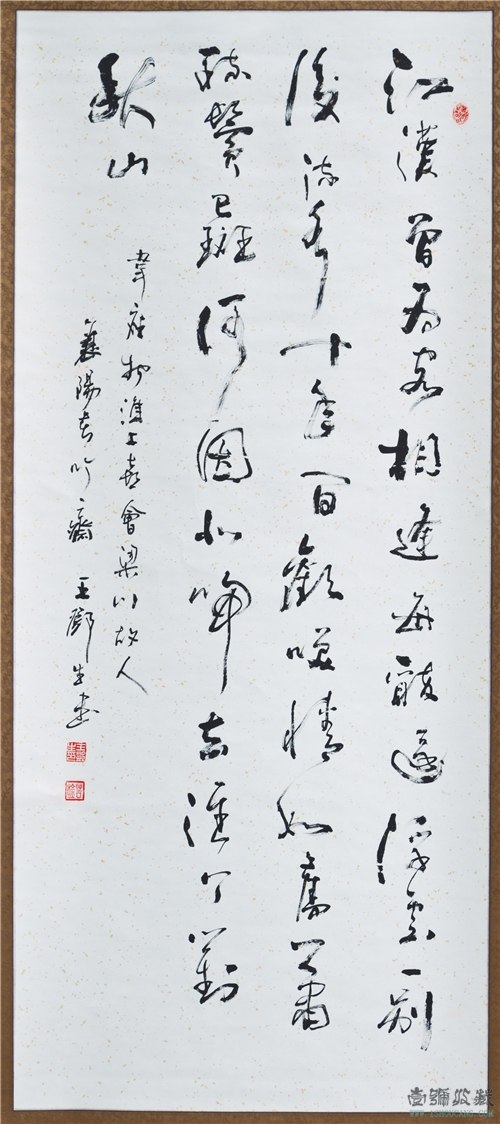 江漢曾为客相逢每醉還浮雲一别
後流水十年间歡笑情如舊蕭
疏鬢已斑何因北歸去淮上對
秋山
韋应物淮上喜會梁川故人
襄陽吟齋 王鄧生書
尚彌收藏